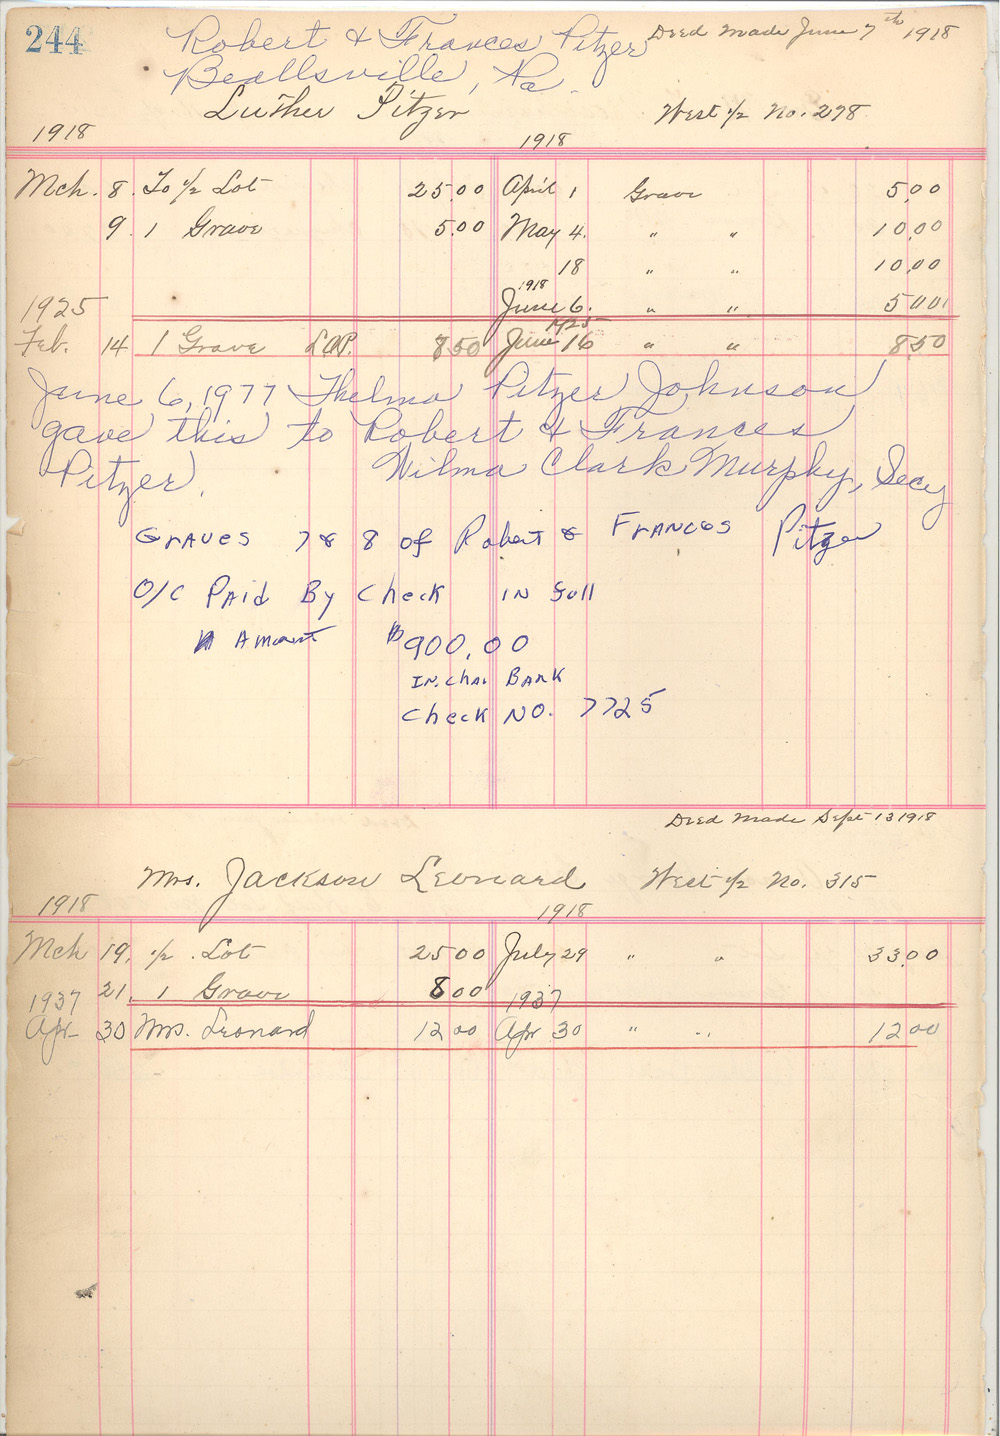 244
Robert & Frances Pitzer Deed Made June 7th 1918
Beallsville, Pa.
Luther Pitzer West 1/2 No. 278
1918 1918
Mch. 8. To 1/2 Lot 25.00 April 1 Grave 5.00
9. 1 Grave 5.00 May 4. " " 10.00
18 " " 10.00
1918
1925 June 6. " " 5.00
1925
Feb. 14 1 Grave L.O.P. 8.50 June 16 " " 8.50
June 6, 1977 Thelma Pitzer Johnson
gave this to Robert & Frances
Pitzer. Wilma Clark Murphy, Secy
Graves 7 & 8 of Robert & Frances Pitzer
O/C Paid By Check in full
Amount $900.00
In. Cha. Bank
Check No. 7725
Deed Made Sept 13 1918
Mrs. Jackson Leonard West 1/2 No. 315
1918 1918
Mch 19. 1/2 Lot 25.00 July 29 " " 33.00
21. 1 Grave 8.00
1937 1937
Apr 30 Mrs. Leonard 12.00 Apr 30 " " 12.00